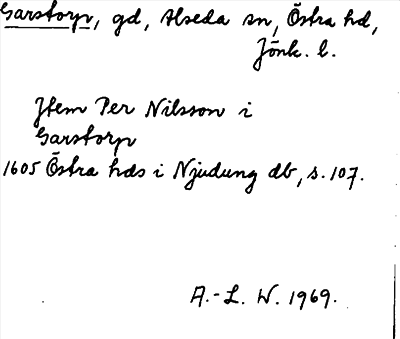 Garstorp, gd, Alseda sn, Östra hd,
Jönk. l.
Item Per Nilsson i
Garstorp
1605 Östra hds i Njudung db, s. 107.
A.-L. W. 1969.